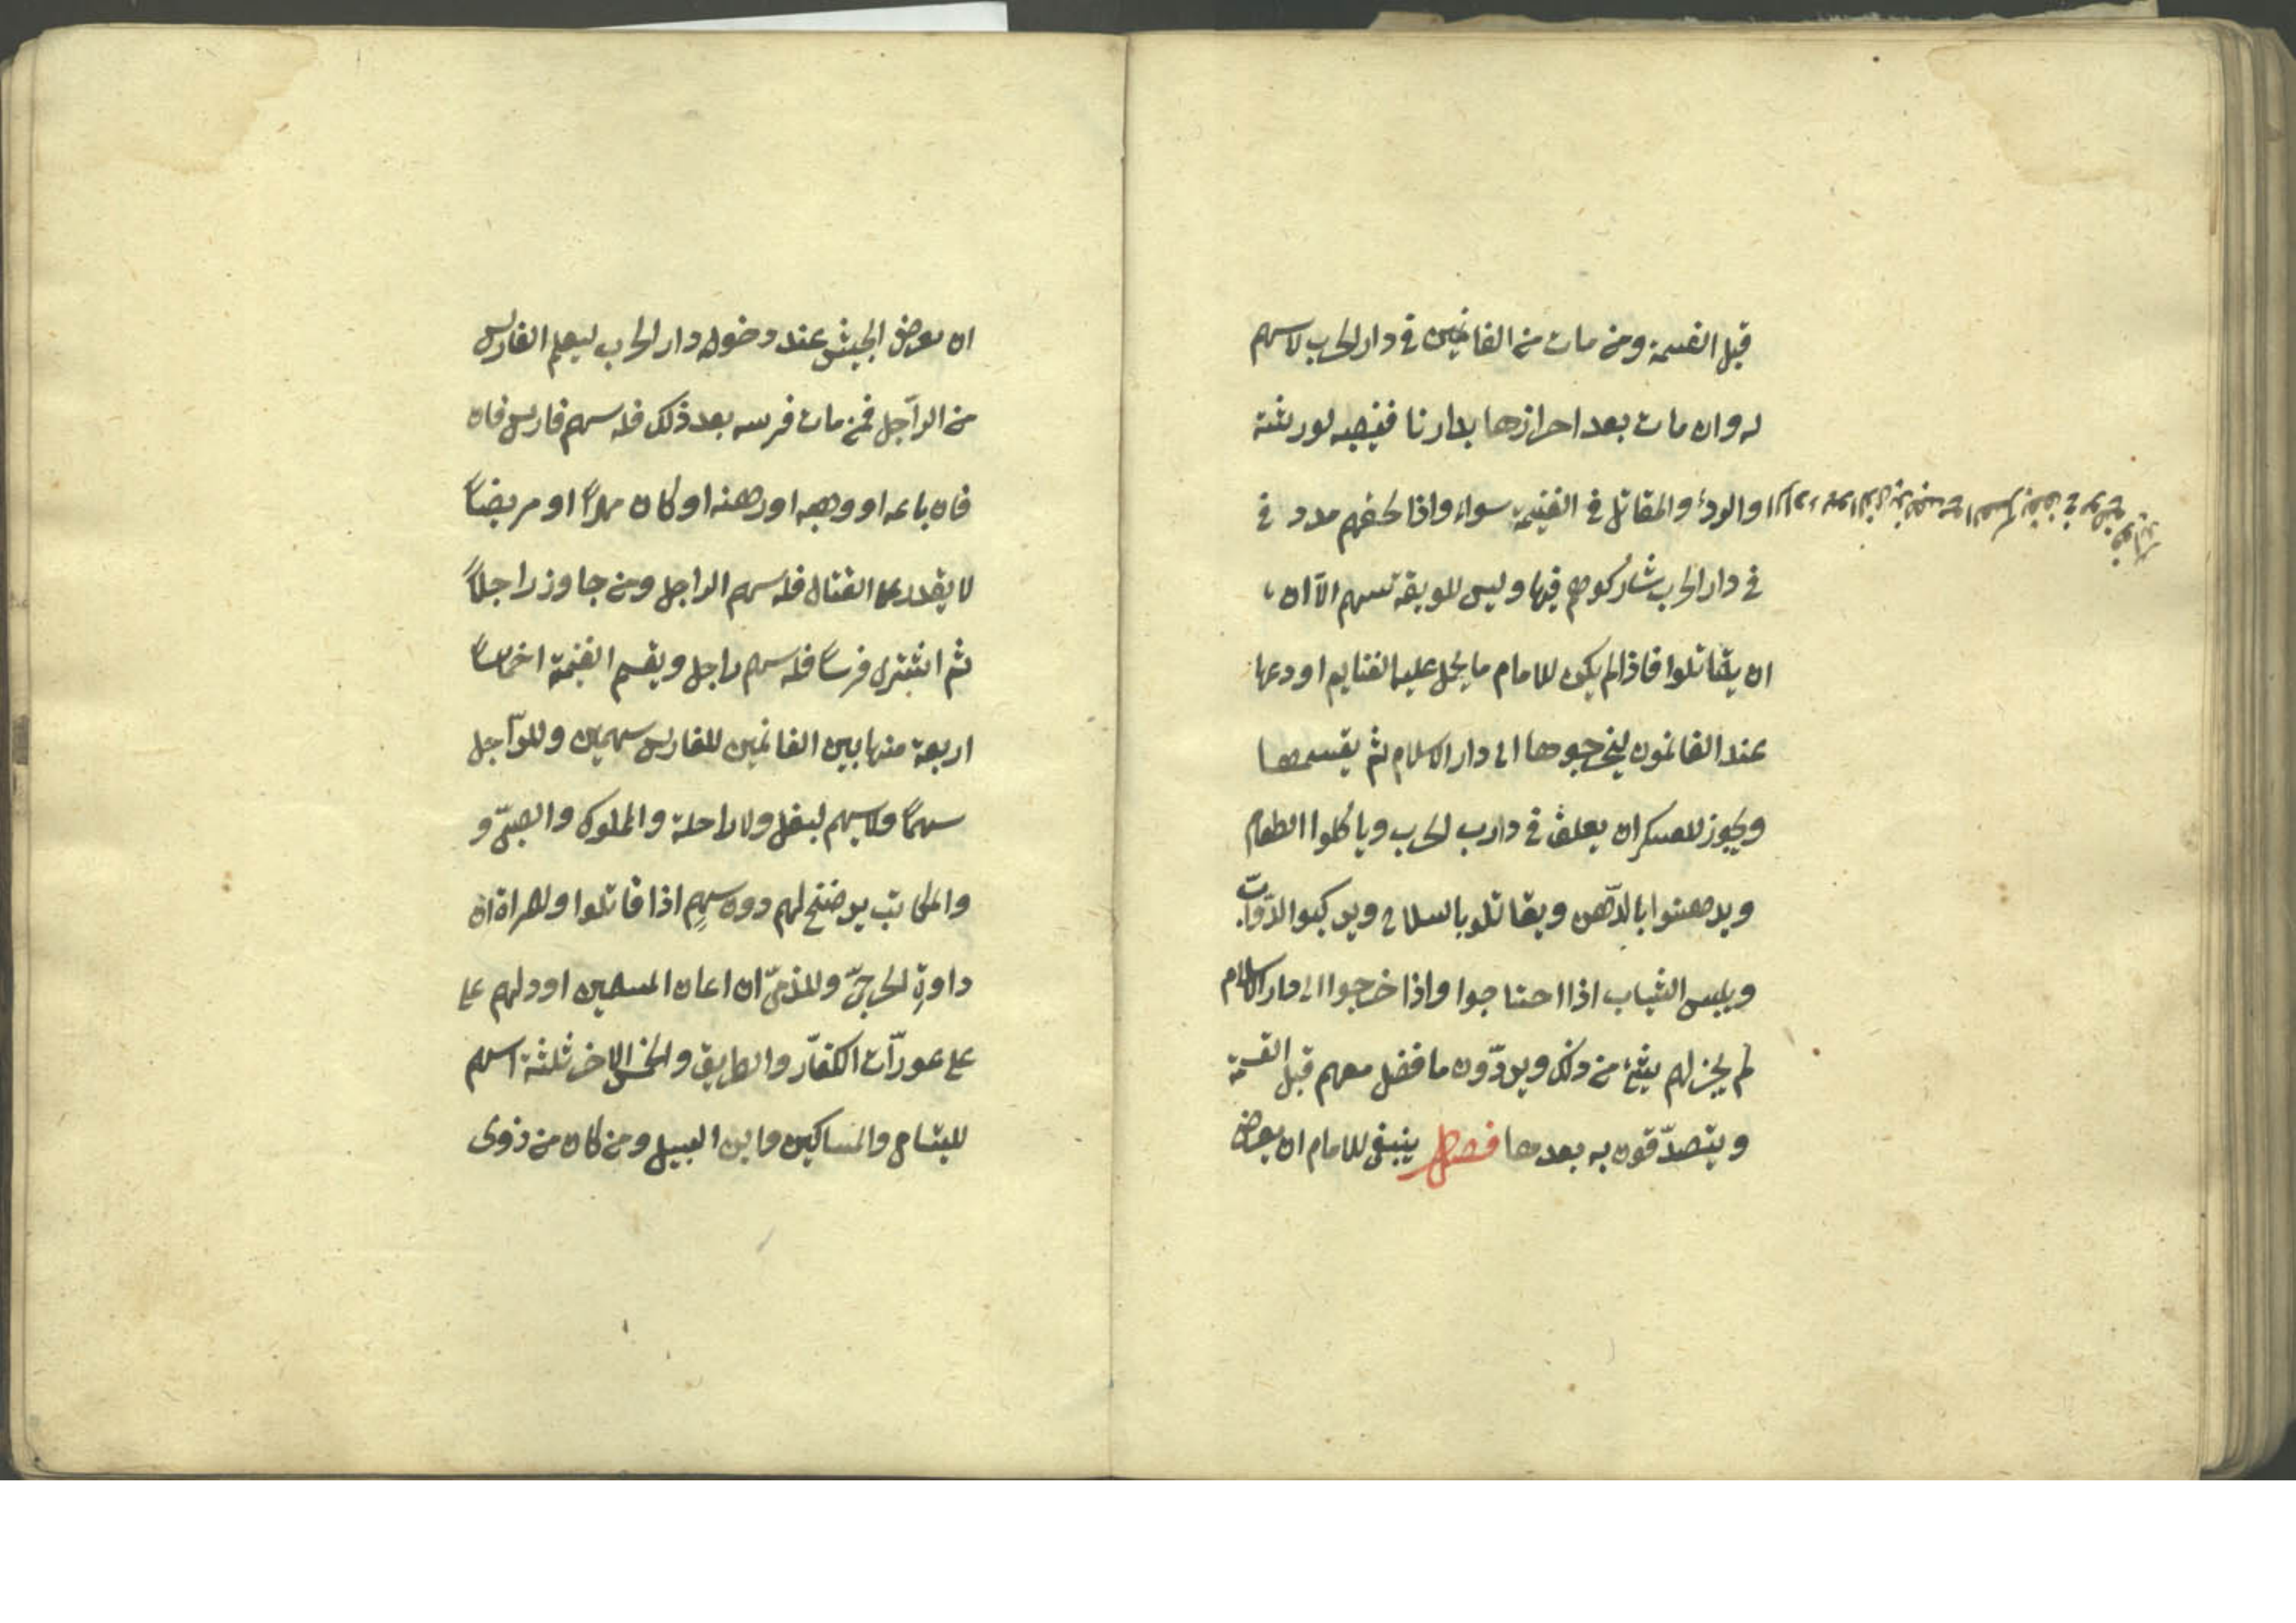 قبل القسمة ومن مات من الغانمين في دار الحرب لاسهم
له وان مات بعد احرازها بدارنا فنصيبه لورثته
والردء والمقاتل في الغنيمة سواء واذا لحقهم مدد في
في دار الحرب شاركوهم فيها وليس للسوقة سهم الا ان
ان يقاتلوا فاذا لم يكن للامام ما يحمل عليه الغنايم اودعها
عند الغانمون ليخرجوها الى دار الاسلام ثم يقسمها
ويجوز للعسكر ان يعلف في دارب الحرب وياكلوا الطعام
ويدهنوا بالدّهن ويقاتلو بالسلاح ويركبوا الدّوابّ
ويلبس الثياب اذا احتاجوا واذا خرجوا الى دار الاسلام
لم يجز لهم شئ من ذلك ويردّون ما فضل معهم قبل القسمة
ويتصدّقون به بعدها فصل ينبغي للامام ان يعرض
ان يعرض الجيش عند دخوله دار الحرب ليعلم الفارس
من الراجل فمن مات فرسه بعد ذلك فله سهم فارس فان
فان باعه او وهبه او رهنه او كان مهراً او مريضاً
لا يقدر على القتال فله سهم الراجل ومن جاوز راجلاً
ثم اشترى فرساً فله سهم راجل ويقسم الغنيمة اخماساً
اربعة منها بين الغانمين للفارس سهمين وللرّاجل
سهماً ولا سهم لبغل ولا راحلة والمملوك والصبيّ و
والمكاتب يرضخ لهم دون سهم اذا قاتلوا ولمراة ان
داوة الجرحيّ وللذميّ ان اعان المسلمين او دلهم على
على عورات الكفّار والطريق والخمس الاخر ثلثة اسهم
لليتامى والمساكين وابن السبيل ومن كان من ذوى